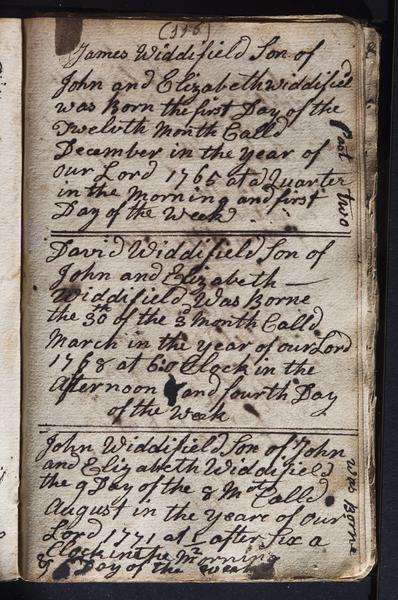 (116)
James Widdifield Son of
John and Elizabeth widdifiel
was Born the first Day of the
Twelvth Month Calld
December in the year of
our Lord 1765 at a Quarter
Past two
in the Morning and first
Day of the Week
David Widdifield Son of
John and Elizabeth
Widdifield Was Borne
the 30th of the 3d Month Calld
March in the year of our Lord
1768 at 6 o Clock in the
Afternoon and fourth Day
of the Week
John Widdifield Son of John
and Elizabeth Widdifield
was Borne
the 9 Day of the 8 Moth Calld
August in the Yeare of our
Lord 1771 at after six a
Clock in the Morning
& 6 Day of the week